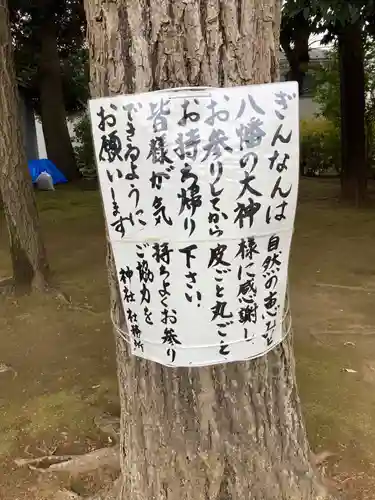 ぎんなんは自然の恵みと
八幡の大神様に感謝し、
お参りしてから皮ごと丸ごと
お持ち帰り下さい。
皆様が気持ちよくお参り
できるようにご協力を
お願いします 神社 社務所